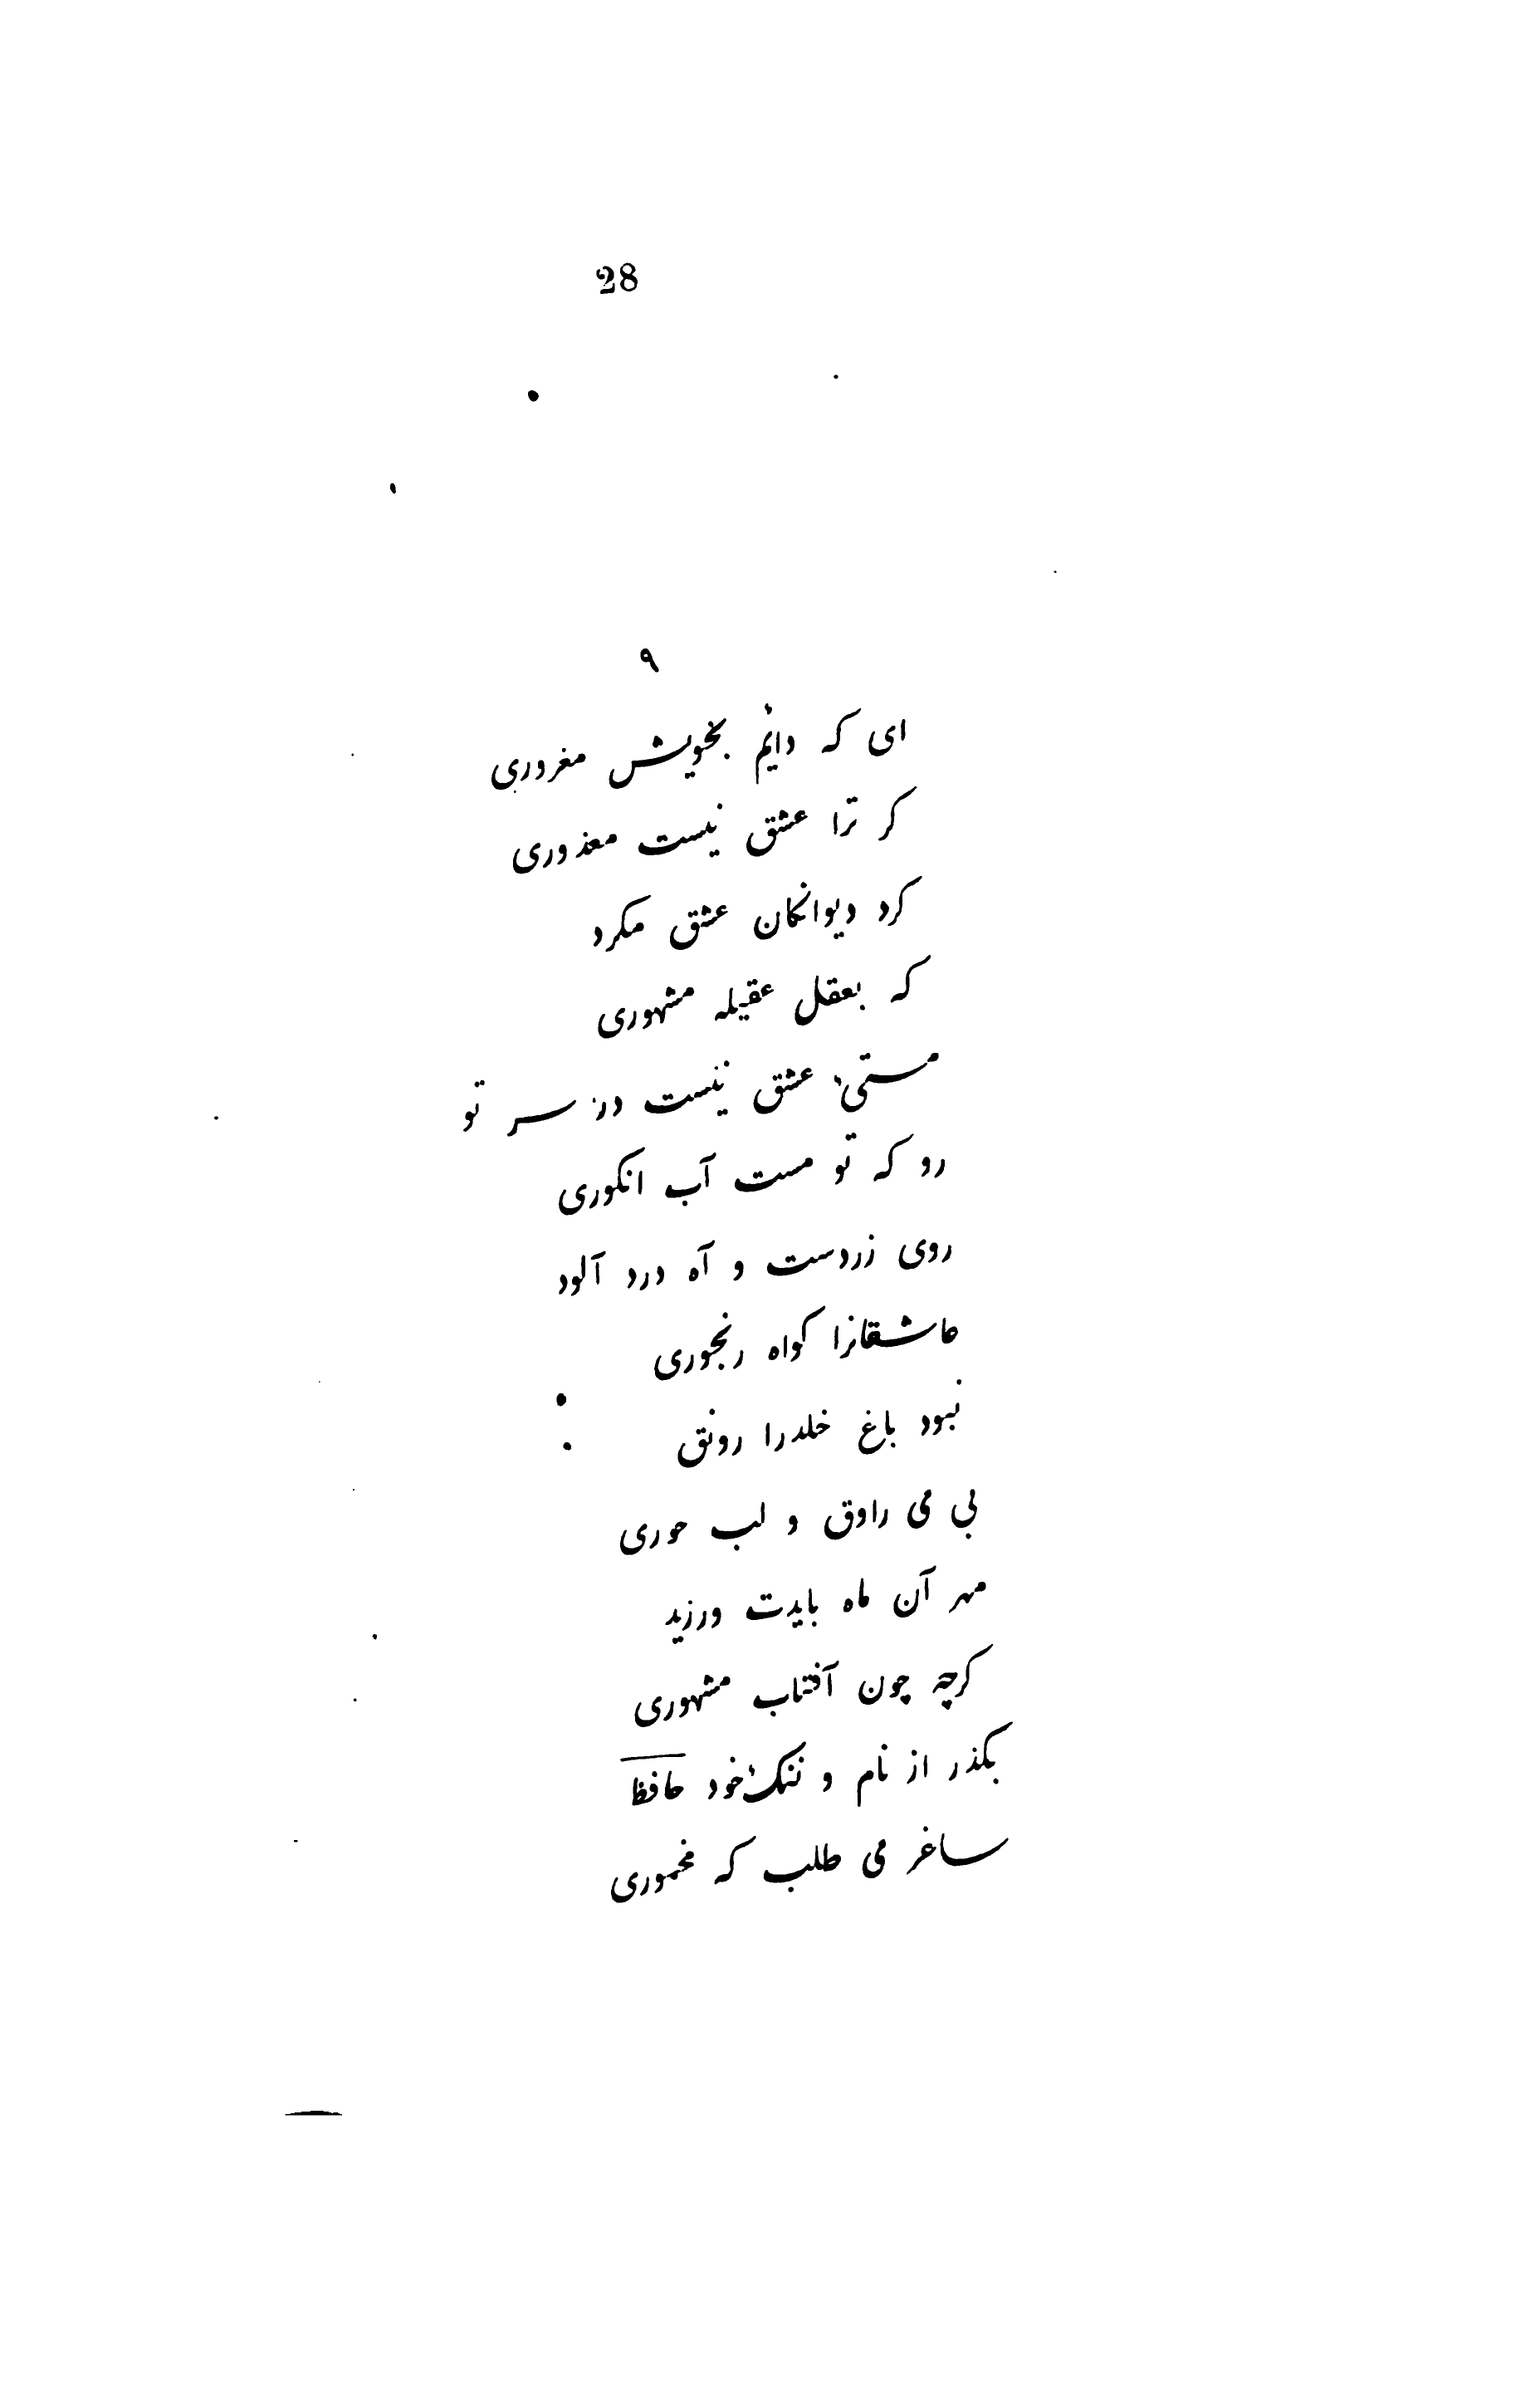 28
۹
ای که دائم بخویش مغروری
کر ترا عشق نیست معذوری
کرد دیوانکان عشق مکرد
که بعقل عقیله مشهوری
مستیٔ عشق نیست در سر تو
رو که تو مست آب انکوری
روی زردست و آه درد آلود
عاشقانرا کواه رنجوری
نبود باغ خلدرا رونق
بی می راوق و لب حوری
مهر آن ماه بایدت ورزید
کرچه چون آفتاب مشهوری
بکذر از نام و ننک خود حافظ
ساغر می طلب که مخموری